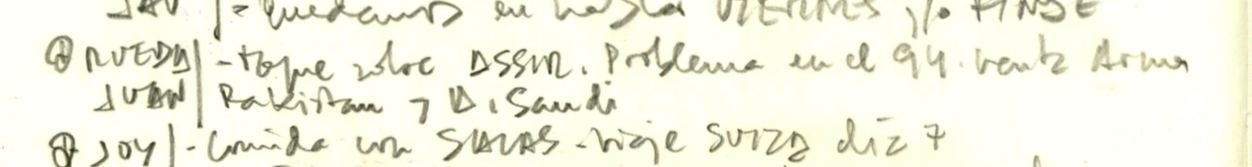 JAV | = quedamos en hablar VIERNES y/o FINDE
⊕ RUEDA | - toque sobre ASSIR. Problema en el 94. venta Arma
JUAN | Pakistan y A. Saudi
⊕ JOY | - Comida con SALAS - viaje SUIZA día 7